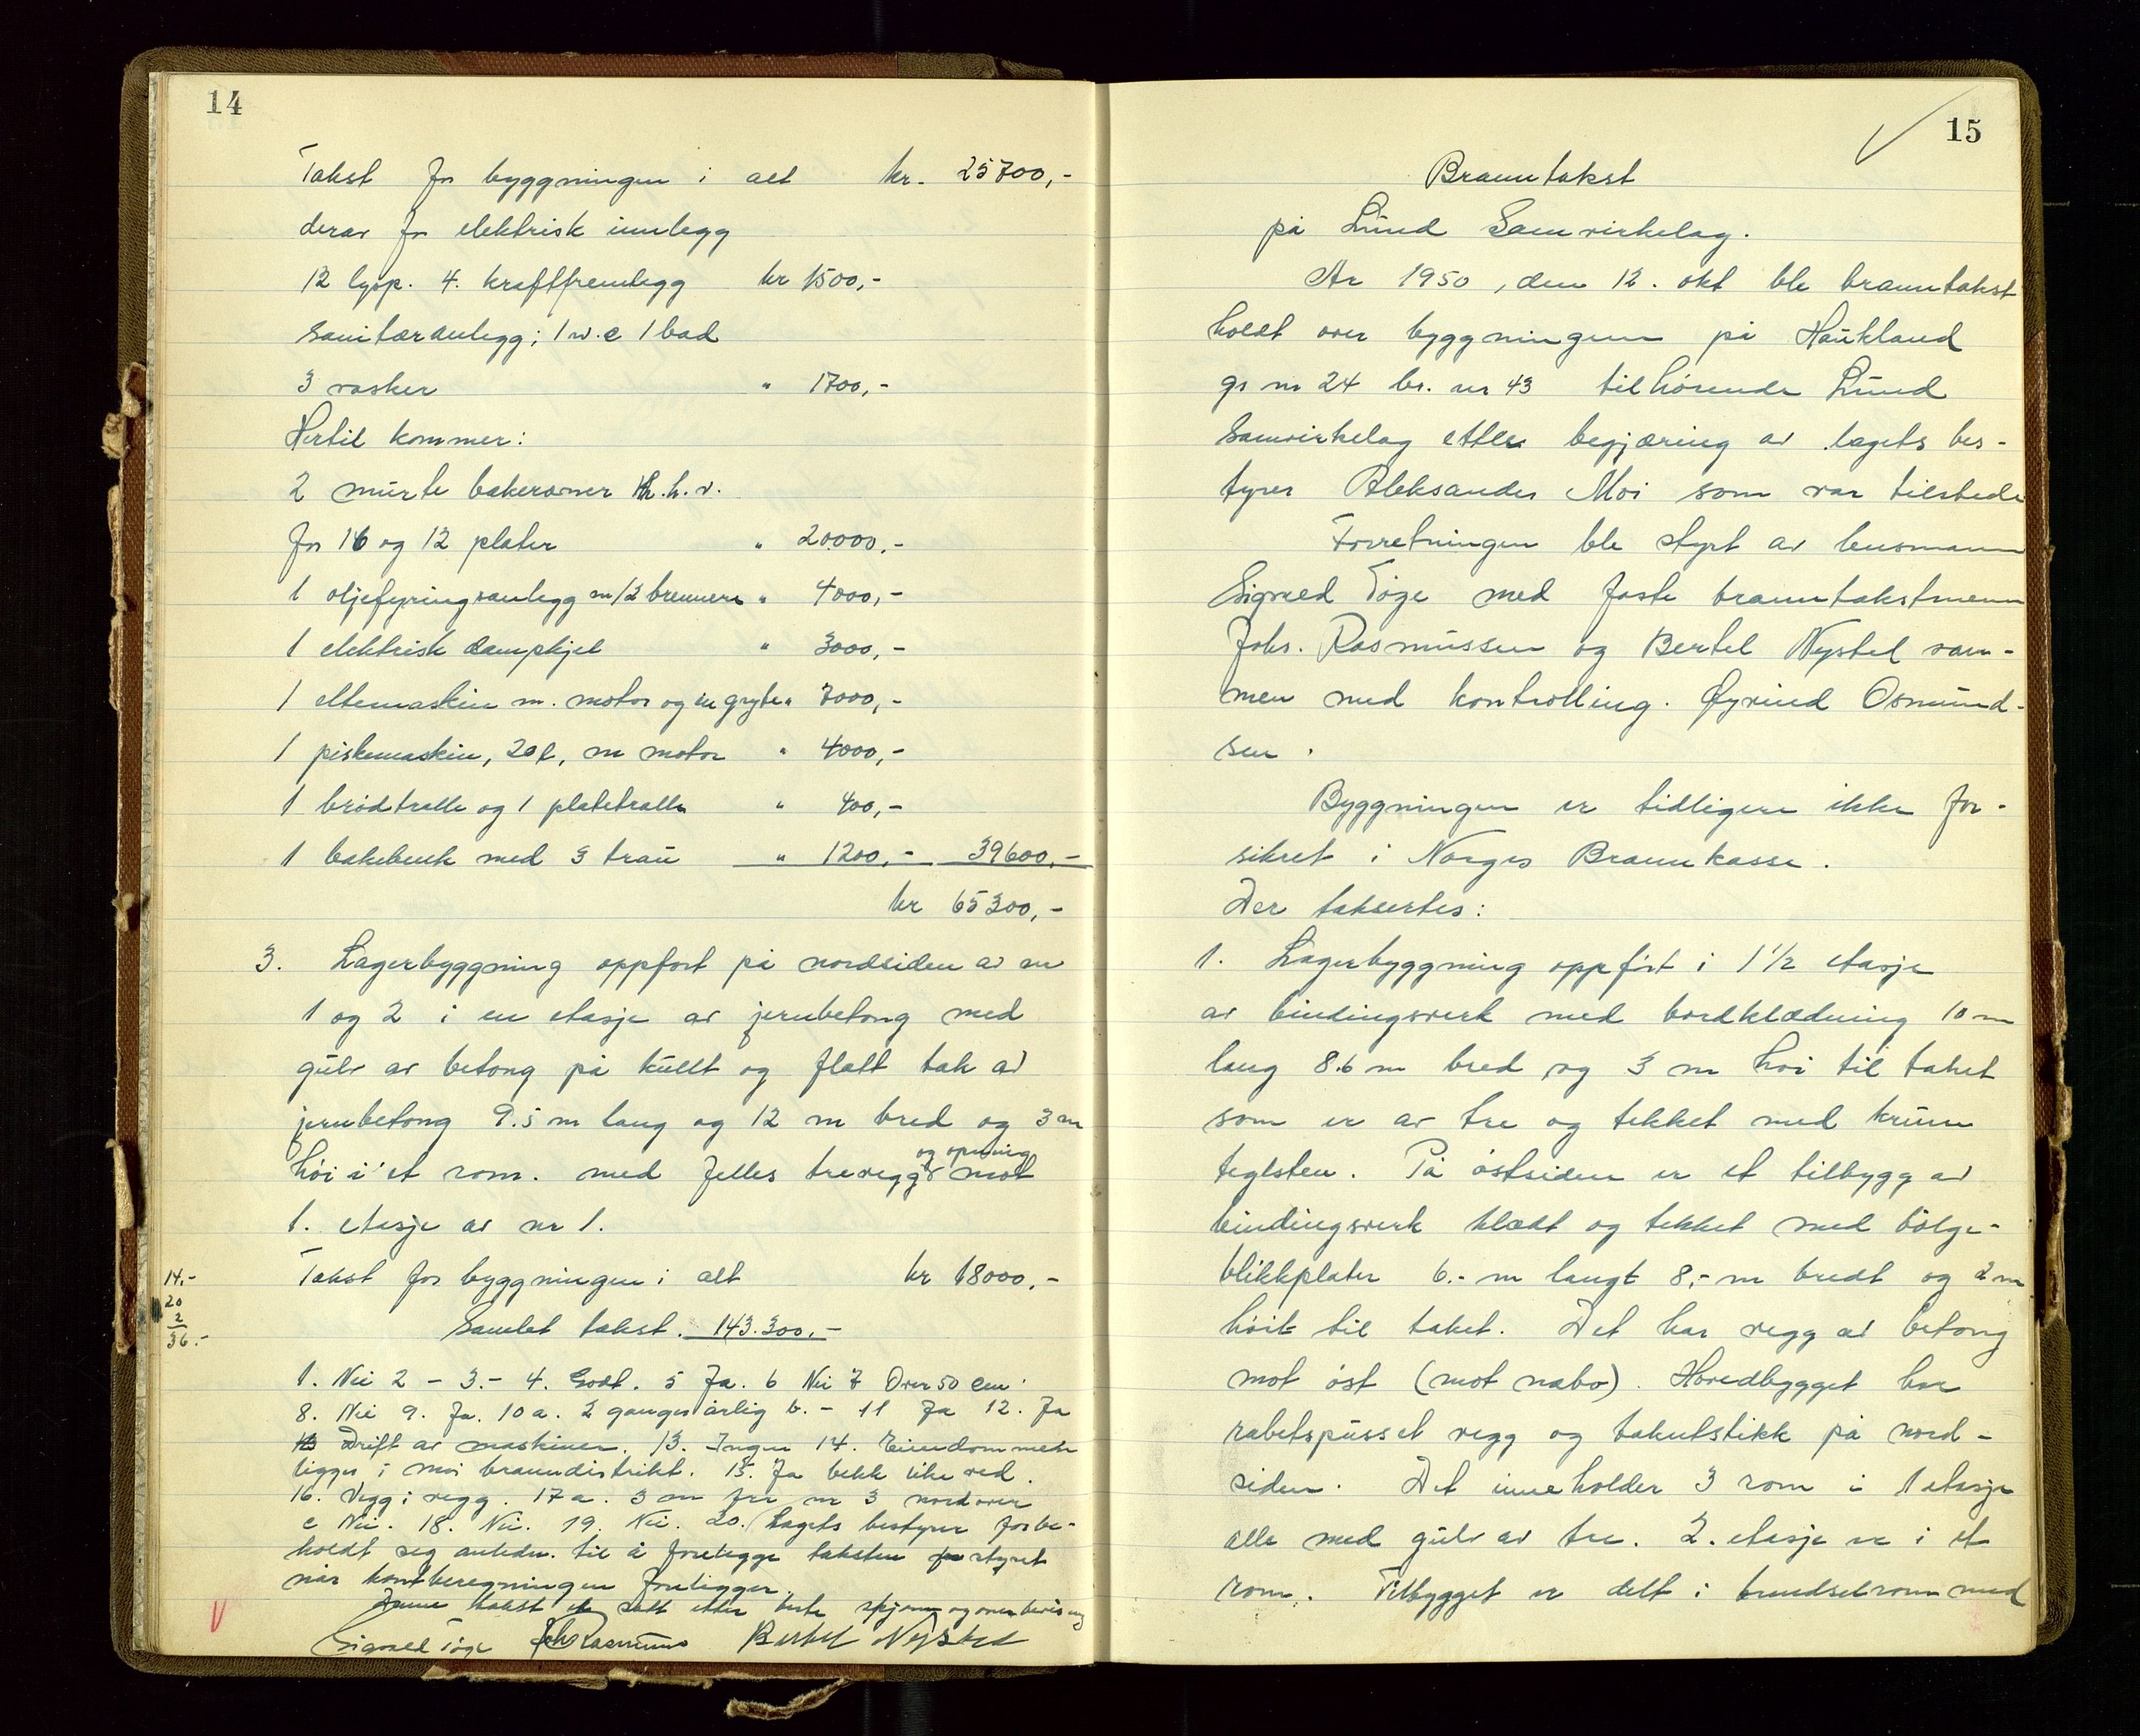 14
Takst for byggningen i alt kr. 25700,-
derav for elektrisk innlegg
12 lysp. 4. kraftfremlegg kr 1500,-
Sanitæranlegg; 1 w.c 1 bad
3 vasker " 1700,-
Hertil kommer:
2 murte bakerovner h.h.v.
for 16 og 12 plater " 20000,-
1 oljefyringsanlegg m/2 brennere " 4000,-
1 elektrisk dampkjel " 3000,-
1 eltemaskin m. motor og en gryte " 7000,-
1 piskemaskin, 20 l, m motor " 4000,-
1 brödtralle og 1 platetralle " 400,-
1 bakebenk med 3 trau " 1200,- 39600,-
kr 65300,-
3. Lagerbyggning oppfört på nordsiden av nr
1 og 2 i en etasje av jernbetong med
gulv av betong på kullt og flatt tak av
jernbetong 9.5 m lang og 12 m bred og 3 m
höi i et rom. med felles trevegg og opning mot
1. etasje av nr 1.
Takst for byggningen i alt kr 18000,-
Samlet takst. 143.300,-
14,-
20
2
36.-
1. Nei 2 - 3.- 4. Godt. 5 Ja. 6 Nei 7 Over 50 cm.
8. Nei 9. Ja. 10 a. 2 ganger årlig b. - 11 Ja 12. Ja
Drift av maskiner. 13. Ingen 14. Eiendommen
ligger i Moi branndistrikt. 15. Ja bekk like ved.
16. Vegg i vegg. 17 a. 3 m fra nr 3 nordover
c Nei. 18. Nei. 19. Nei. 20. Lagets bestyrer forbe-
holdt seg anledn. til å forelegge taksten for styret
når kostberegningen foreligger.
Denne takst er satt etter beste skjönn og overbevisning
Sigvald Töge Joh Rasmussen Bertel Nystel
15
Branntakst
på Lund Samvirkelag.
År 1950, den 12. okt ble branntakst
holdt over byggningen på Haukland
gr nr 24 br. nr 43 tilhörende Lund
Samvirkelag etter begjæring av lagets bes-
tyrer Aleksander Moi som var tilstede
Forretningen ble styrt av lensmann
Sigvald Töge med faste branntakstmenn
Johs. Rasmussen og Bertel Nystel sam-
men med kontrolling. Øyvind Osmund-
sen.
Byggningen er tidligere ikke for-
sikret i Norges Brannkasse.
Der taksertes:
1. Lagerbyggning oppfört i 1 1/2 etasje
av bindingsverk med bordklædning 10 m
lang 8.6 m bred og 3 m höi til taket
som er av tre og tekket med krum
teglsten. På östsiden er et tilbygg av
bindingsverk klædt og tekket med bölge-
blikkplater 6.- m langt 8,- m bredt og 2 m
höit til taket. Det har vegg av betong
mot öst (mot nabo). Hovedbygget har
rabetspusset vegg og takutstikk på nord-
siden. Det inneholder 3 rom i 1 etasje
alle med gulv av tre. 2. etasje er i et
rom. Tilbygget er delt i brendselrom med